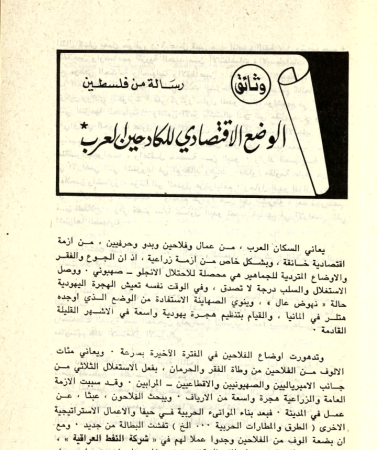 وثائق
رسالة من فلسطين
الوضع الاقتصادي للكادحين العرب *
يعاني السكان العرب ، من عمال وفلاحين وبدو وحرفيين ، من أزمة
اقتصادية خانقة ، وبشكل خاص من أزمة زراعية ، اذ ان الجوع والفقر
والاوضاع المتردية للجماهير هي محصلة للاحتلال الانجلو – صهيوني . ووصل
الاستغلال والسلب درجة لا تصدق ، وفي الوقت نفسه تعيش الهجرة اليهودية
حالة « نهوض عال » ، وينوي الصهاينة الاستفادة من الوضع الذي اوجده
هتلر في المانيا ، والقيام بتنظيم هجرة يهودية واسعة في الاشهر القليلة
القادمة .
وتدهورت اوضاع الفلاحين في الفترة الأخيرة بسرعة . ويعاني مئات
الالوف من الفلاحين من وطأة الفقر والحرمان ، بفعل الاستغلال الثلاثي من
جانب الامبرياليين والصهيونيين والاقطاعيين – المرابين . وقد سببت الازمة
العامة والزراعية هجرة واسعة من الارياف . ويبحث الفلاحون ، عبثا ، عن
عمل في المدينة . فبعد بناء الموانىء الحربية في حيفا والاعمال الاستراتيجية
الاخرى ( الطرق والمطارات الحربية ... الخ ) تفشت البطالة من جديد . ومع
ان بضعة الوف من الفلاحين وجدوا عملا لهم في « شركة النفط العراقية » ،